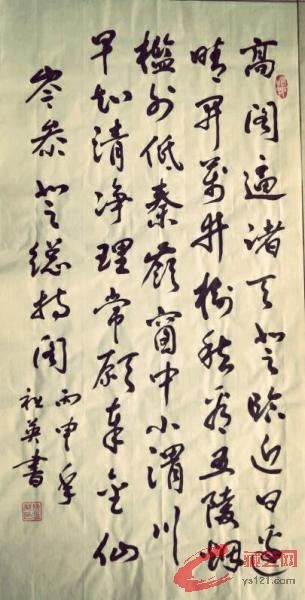 高阁逼诸天登临近日边
晴开萬井樹愁看五陵烟
檻外低秦嶺窗中小渭川
早知清净理常願奉金仙
岑参登總持阁 丙申年
社英書
ys121.com